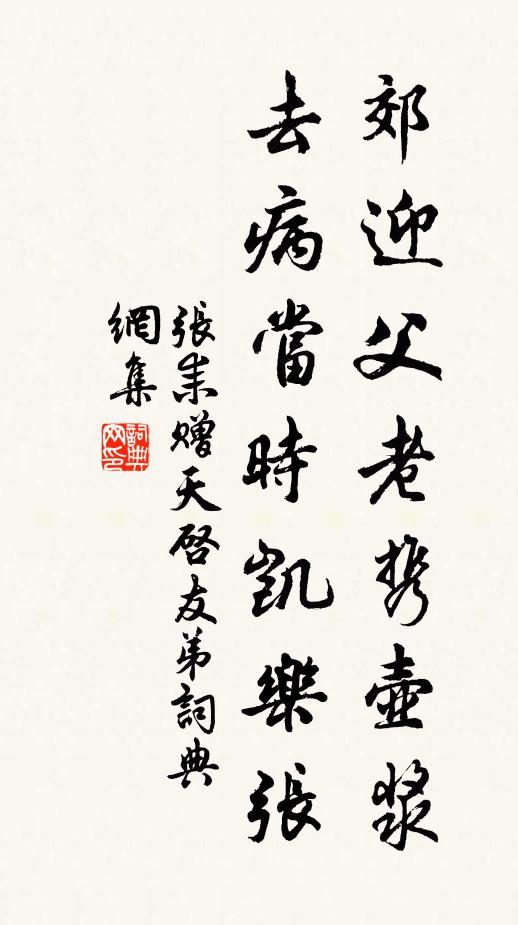 郊迎父老携壺漿
去病當時凱樂張
張耒贈天啓友弟詞典
網集
詞典网印